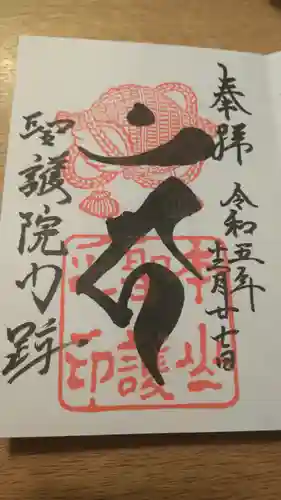 奉拝
令和五年
十二月廿七日
本山
聖護
之印
聖護院門跡